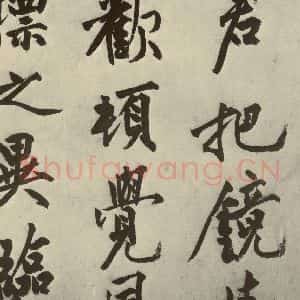 君把鏡
歡頓覺
標之異臨
Shufawang.CN